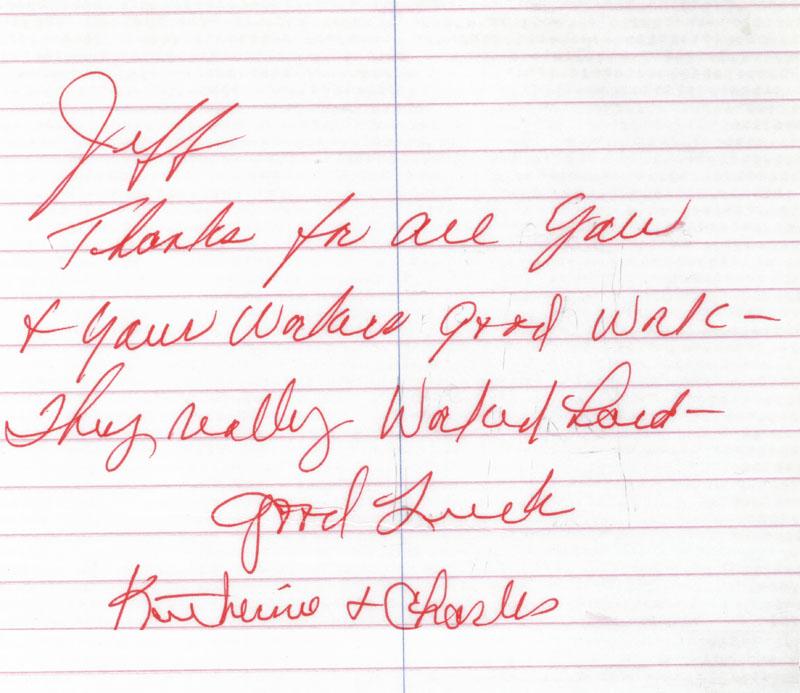 Jeff
Thanks for all your
+ your workers good work -
They really worked hard -
good Luck
Katherine + Charles